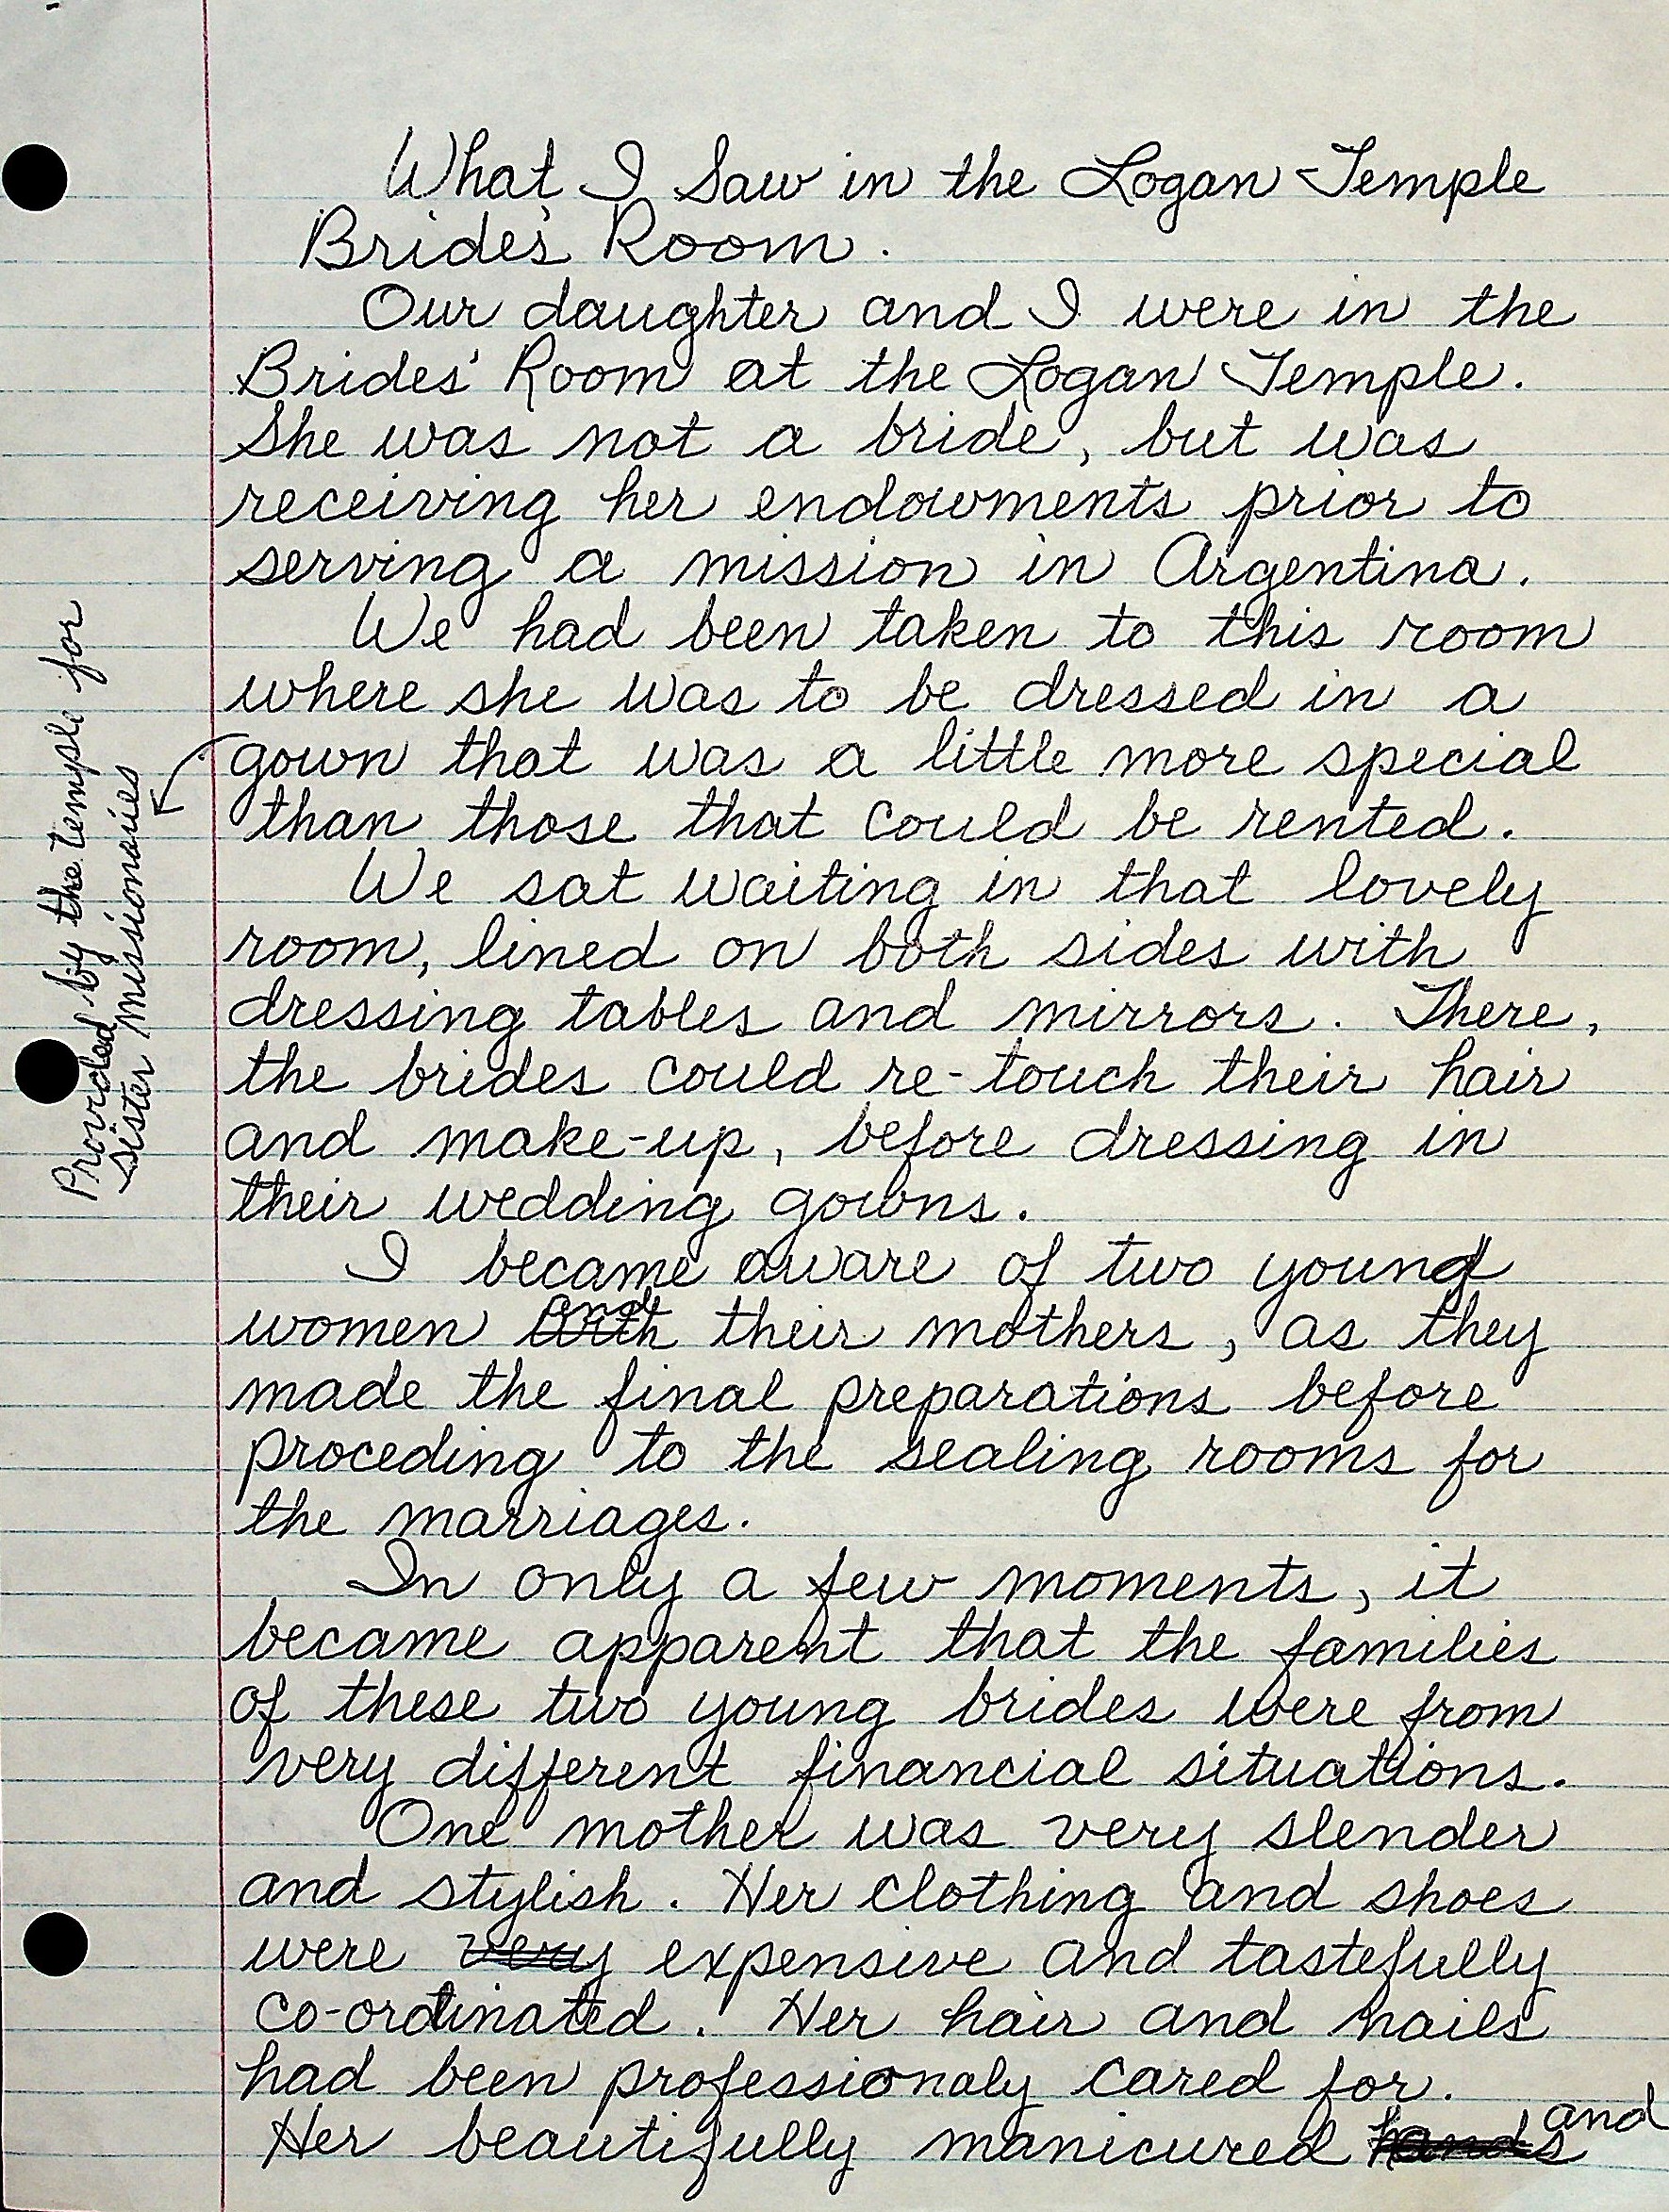 What I Saw in the Logan Temple
Bride's Room.
Our daughter and I were in the
Brides' Room at the Logan Temple.
She was not a bride, but was
receiving her endowments prior to
serving a mission in Argentina.
We had been taken to this room
where she was to be dressed in a
gown that was a little more special
than those that could be rented.
Provided by the temple for
sister missionaries
We sat waiting in that lovely
room, lined on both sides with
dressing tables and mirrors. There,
the brides could re-touch their hair
and make-up, before dressing in
their wedding gowns.
I became aware of two young
women and their mothers, as they
made the final preparations before
proceding to the sealing rooms for
the marriages.
In only a few moments, it
became apparent that the families
of these two young brides were from
very different financial situations.
One mother was very slender
and stylish. Her clothing and shoes
were very expensive and tastefully
co-ordinated. Her hair and nails
had been professionaly cared for.
Her beautifully manicured hands and